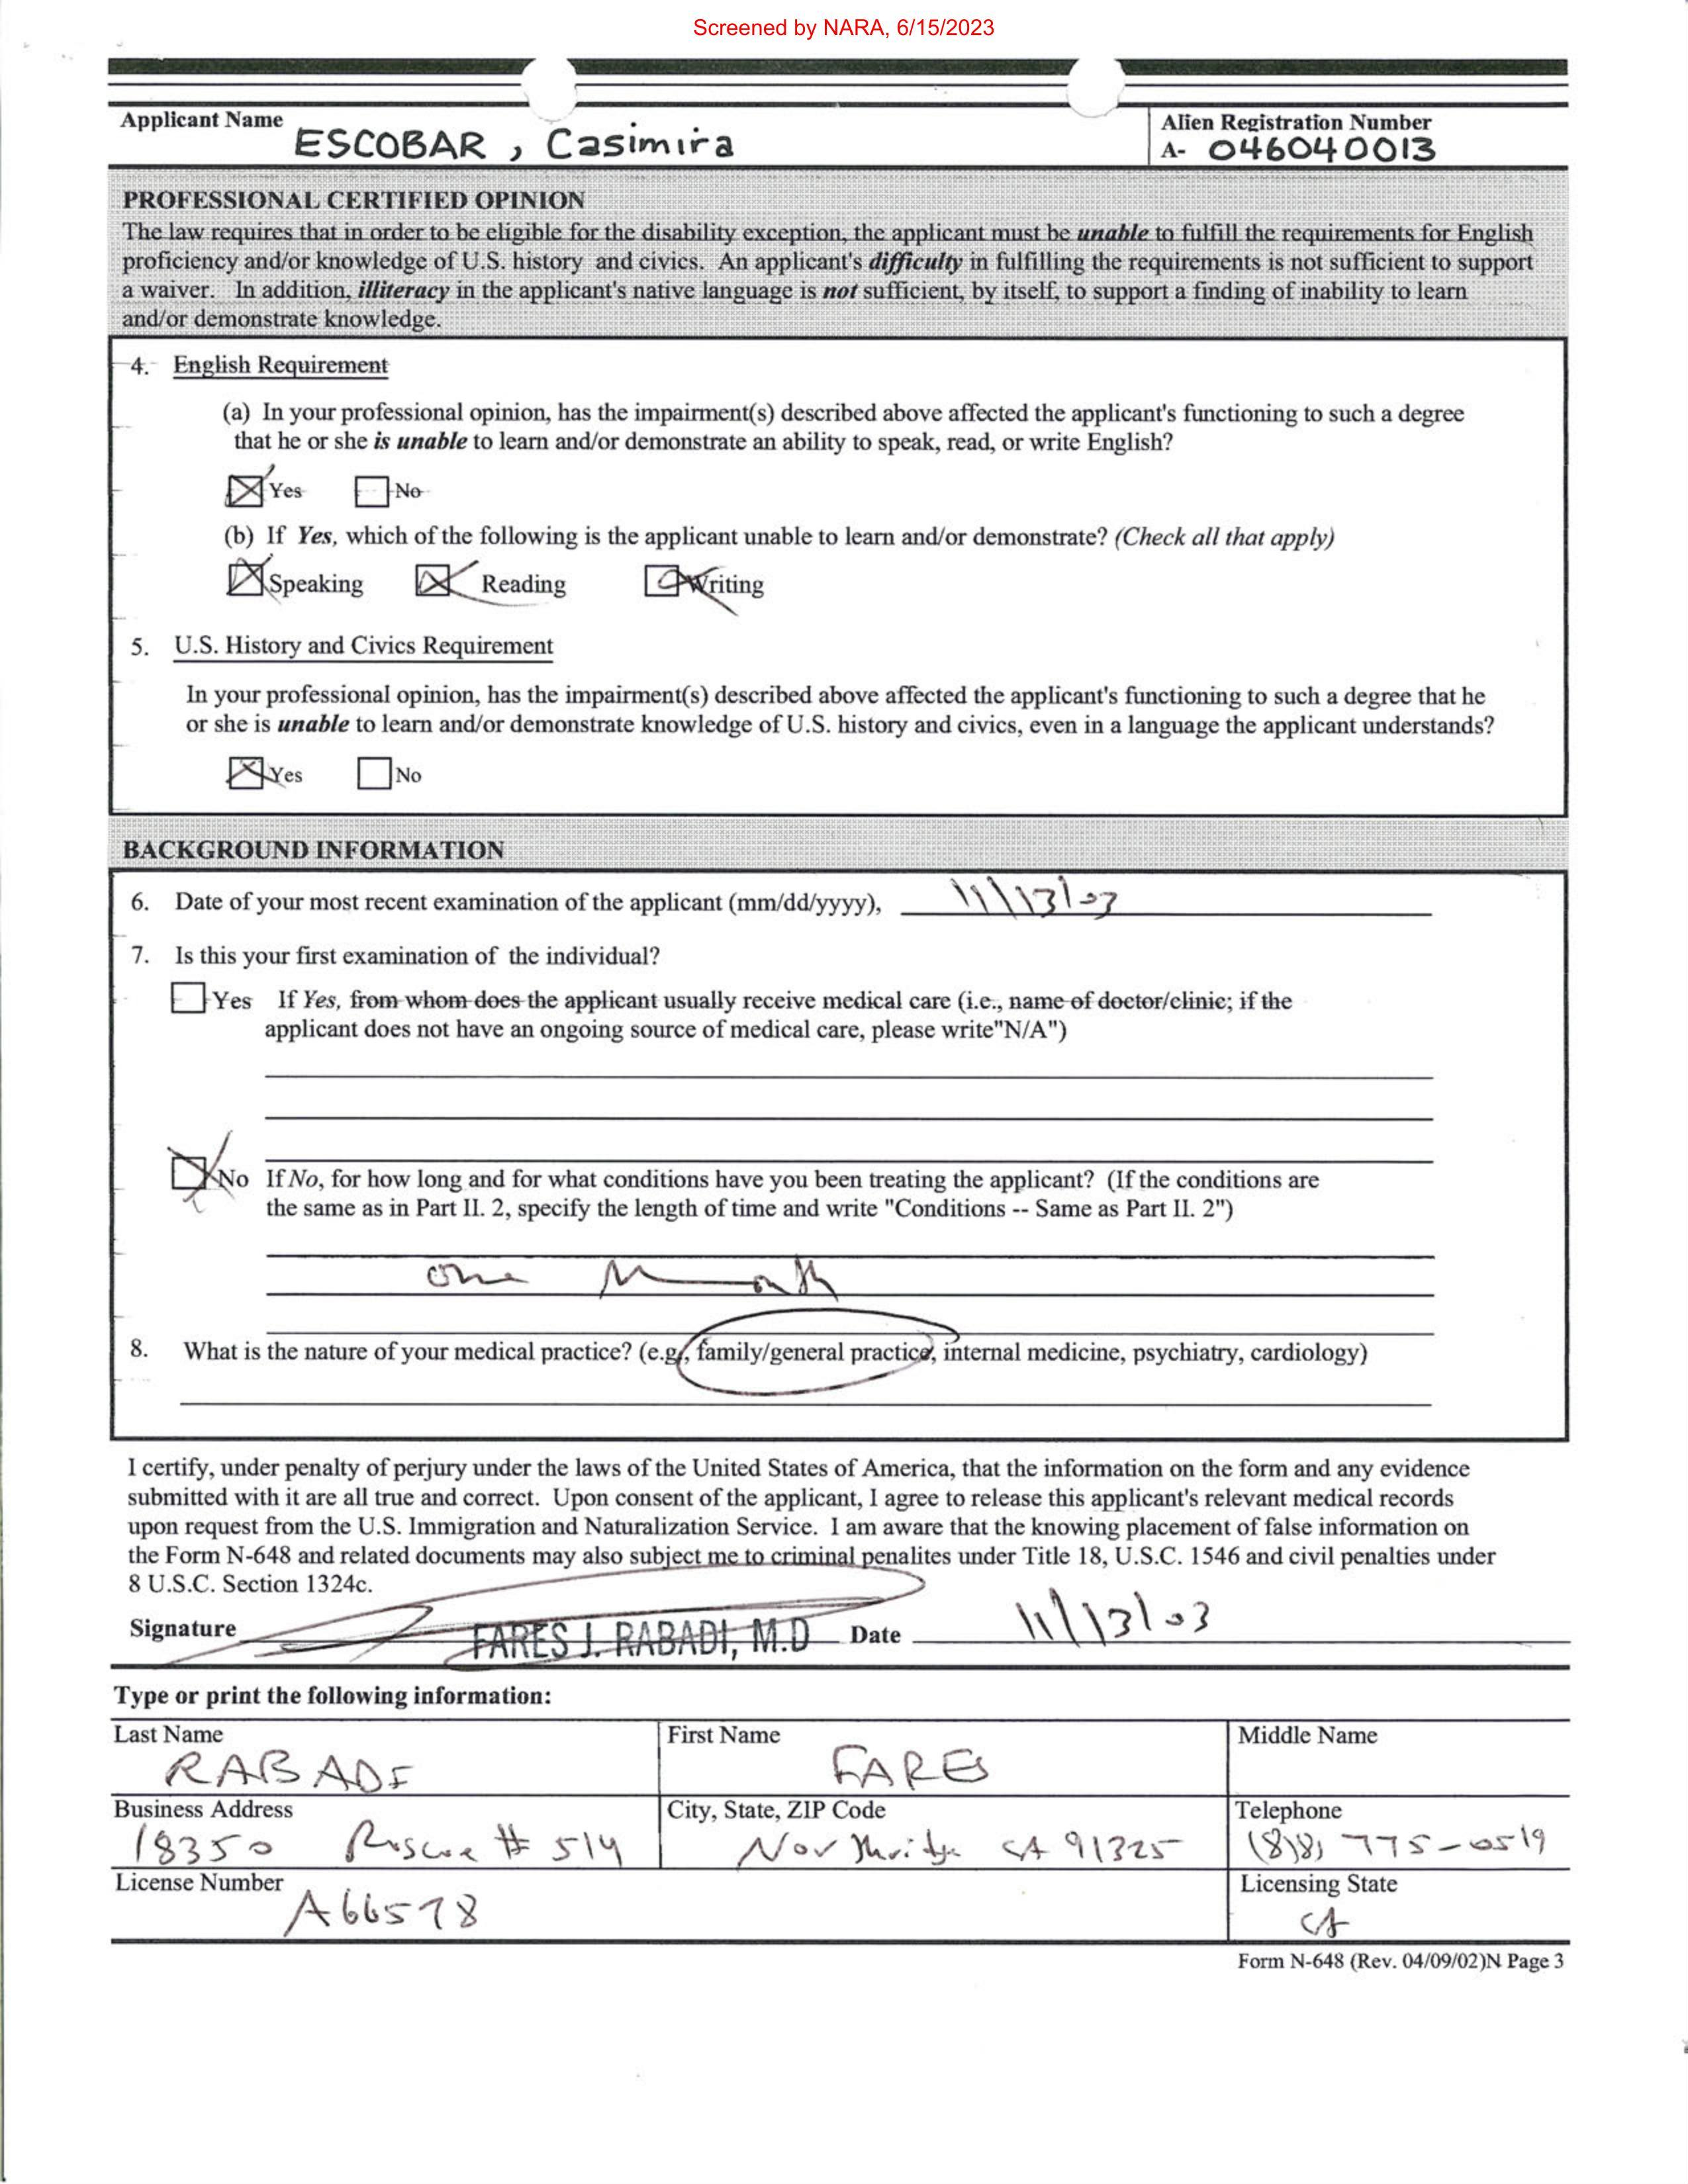 Screened by NARA, 6/15/2023
Applicant Name
ESCOBAR, Casimira
Alien Registration Number
A- 046040013
PROFESSIONAL CERTIFIED OPINION
The law requires that in order to be eligible for the disability exception, the applicant must be unable to fulfill the requirements for English
proficiency and/or knowledge of U.S. history and civics. An applicant's difficulty in fulfilling the requirements is not sufficient to support
a waiver. In addition, illiteracy in the applicant's native language is not sufficient, by itself, to support a finding of inability to learn
and/or demonstrate knowledge.
4. English Requirement
(a) In your professional opinion, has the impairment(s) described above affected the applicant's functioning to such a degree
that he or she is unable to learn and/or demonstrate an ability to speak, read, or write English?
Yes No
(b) If Yes, which of the following is the applicant unable to learn and/or demonstrate? (Check all that apply)
Speaking Reading Writing
5. U.S. History and Civics Requirement
In your professional opinion, has the impairment(s) described above affected the applicant's functioning to such a degree that he
or she is unable to learn and/or demonstrate knowledge of U.S. history and civics, even in a language the applicant understands?
Yes No
BACKGROUND INFORMATION
6. Date of your most recent examination of the applicant (mm/dd/yyyy), 11/13/03
7. Is this your first examination of the individual?
Yes If Yes, from whom does the applicant usually receive medical care (i.e., name of doctor/clinic; if the
applicant does not have an ongoing source of medical care, please write"N/A")
No If No, for how long and for what conditions have you been treating the applicant? (If the conditions are
the same as in Part II. 2, specify the length of time and write "Conditions -- Same as Part II. 2")
one Month
8. What is the nature of your medical practice? (e.g., family/general practice, internal medicine, psychiatry, cardiology)
I certify, under penalty of perjury under the laws of the United States of America, that the information on the form and any evidence
submitted with it are all true and correct. Upon consent of the applicant, I agree to release this applicant's relevant medical records
upon request from the U.S. Immigration and Naturalization Service. I am aware that the knowing placement of false information on
the Form N-648 and related documents may also subject me to criminal penalites under Title 18, U.S.C. 1546 and civil penalties under
8 U.S.C. Section 1324c.
Signature FARES J. RABADI, M.D Date 11/13/03
Type or print the following information:
Last Name First Name Middle Name
RABADI FARES
Business Address City, State, ZIP Code Telephone
18350 Roscoe # 514 Northridge CA 91325 (818) 775-0519
License Number Licensing State
A66578 CA
Form N-648 (Rev. 04/09/02)N Page 3